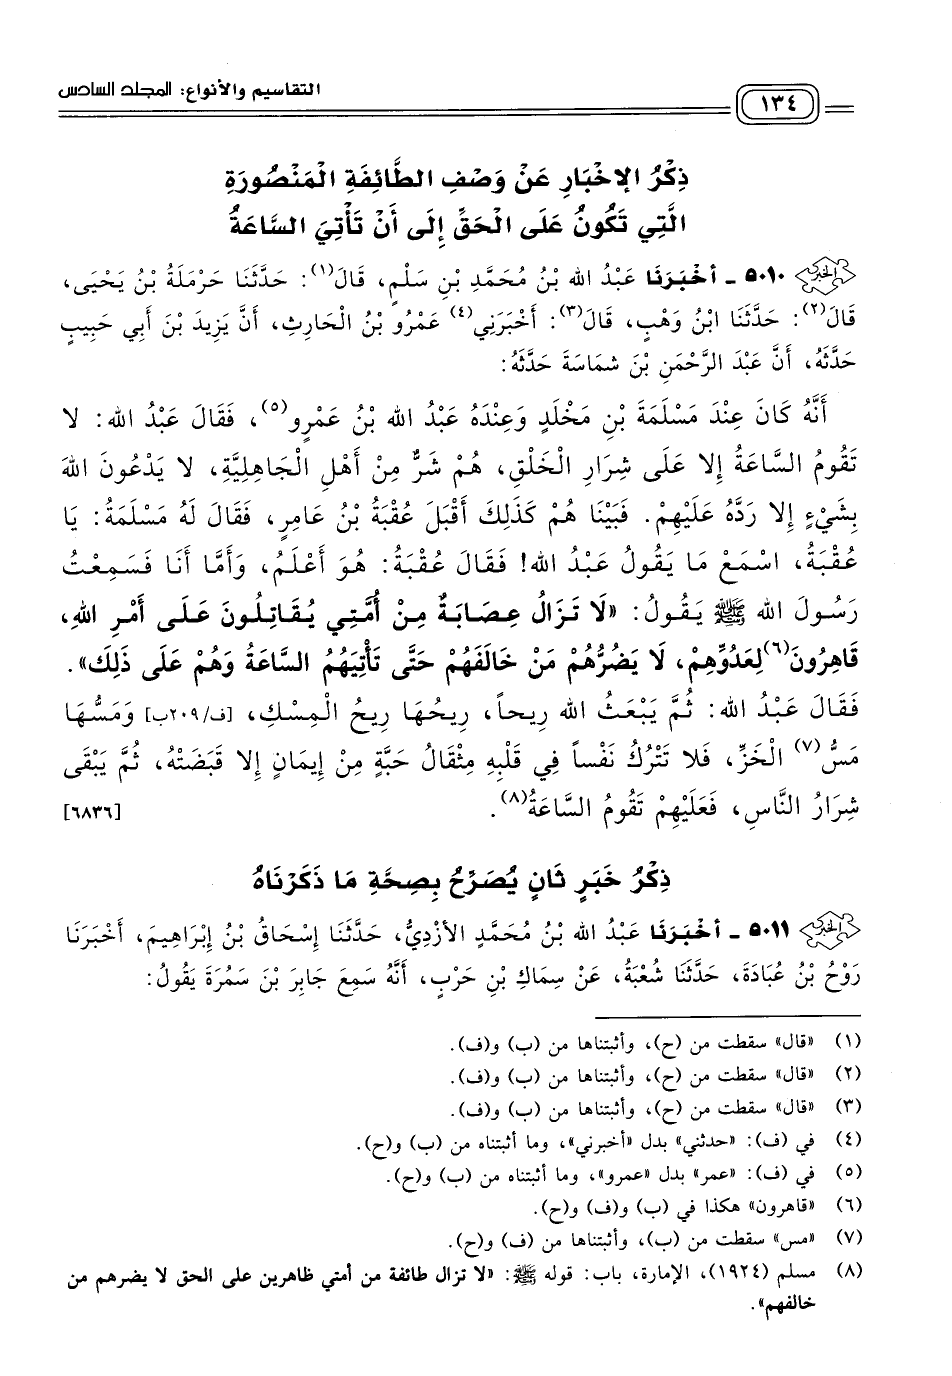 التقاسيم والأنواع: المجلد السادس
١٣٤
ذِكْرُ الإخْبَارِ عَنْ وَصْفِ الطَّائِفَةِ الْمَنْصُورَةِ
الَّتِي تَكُونُ عَلَى الْحَقِّ إِلَى أَنْ تَأْتِيَ السَّاعَةُ
٥٠١٠ ـ أخْبَرَنَا عَبْدُ الله بْنُ مُحَمَّدِ بْنِ سَلْمٍ، قَالَ(١): حَدَّثَنَا حَرْمَلَةُ بْنُ يَحْيَى،
قَالَ(٢): حَدَّثَنَا ابْنُ وَهْبٍ، قَالَ(٣): أَخْبَرَنِي(٤) عَمْرُو بْنُ الْحَارِثِ، أَنَّ يَزِيدَ بْنَ أَبِي حَبِيبٍ
حَدَّثَهُ، أَنَّ عَبْدَ الرَّحْمَنِ بْنَ شمَاسَةَ حَدَّثَهُ:
أَنَّهُ كَانَ عِنْدَ مَسْلَمَةَ بْنِ مَخْلَدٍ وَعِنْدَهُ عَبْدُ الله بْنُ عَمْرٍو(٥)، فَقَالَ عَبْدُ الله: لا
تَقُومُ السَّاعَةُ إلا عَلَى شِرَارِ الْخَلْقِ، هُمْ شَرٌّ مِنْ أَهْلِ الْجَاهِلِيَّةِ، لا يَدْعُونَ اللهَ
بِشَيْءٍ إلا رَدَّهُ عَلَيْهِمْ. فَبَيْنَا هُمْ كَذَلِكَ أَقْبَلَ عُقْبَةُ بْنُ عَامِرٍ، فَقَالَ لَهُ مَسْلَمَةُ: يَا
عُقْبَةُ، اسْمَعْ مَا يَقُولُ عَبْدُ الله! فَقَالَ عُقْبَةُ: هُوَ أَعْلَمُ، وَأَمَّا أَنَا فَسَمِعْتُ
رَسُولَ الله ﷺ يَقُولُ: «لَا تَزَالُ عِصَابَةٌ مِنْ أُمَّتِي يُقَاتِلُونَ عَلَى أَمْرِ اللهِ،
قَاهِرُونَ(٦) لِعَدُوِّهِمْ، لَا يَضُرُّهُمْ مَنْ خَالَفَهُمْ حَتَّى تَأْتِيَهُمُ السَّاعَةُ وَهُمْ عَلَى ذَلِكَ».
فَقَالَ عَبْدُ الله: ثُمَّ يَبْعَثُ الله رِيحاً، رِيحُهَا رِيحُ الْمِسْكِ، [ف/٢٠٩ب] وَمَسُّهَا
مَسُّ(٧) الْخَزِّ، فَلا تَتْرُكُ نَفْساً فِي قَلْبِهِ مِثْقَالُ حَبَّةٍ مِنْ إِيمَانٍ إلا قَبَضَتْهُ، ثُمَّ يَبْقَى
شِرَارُ النَّاسِ، فَعَلَيْهِمْ تَقُومُ السَّاعَةُ(٨). [٦٨٣٦]
ذِكْرُ خَبَرٍ ثَانٍ يُصَرِّحُ بِصِحَّةِ مَا ذَكَرْنَاهُ
٥٠١١ ـ أخْبَرَنَا عَبْدُ الله بْنُ مُحَمَّدٍ الأَزْدِيُّ، حَدَّثَنَا إِسْحَاقُ بْنُ إِبْرَاهِيمَ، أَخْبَرَنَا
رَوْحُ بْنُ عُبَادَةَ، حَدَّثَنَا شُعْبَةُ، عَنْ سِمَاكِ بْنِ حَرْبٍ، أَنَّهُ سَمِعَ جَابِرَ بْنَ سَمُرَةَ يَقُولُ:
(١) «قال» سقطت من (ح)، وأثبتناها من (ب) و(ف).
(٢) «قال» سقطت من (ح)، وأثبتناها من (ب) و(ف).
(٣) «قال» سقطت من (ح)، وأثبتناها من (ب) و(ف).
(٤) في (ف): «حدثني» بدل «أخبرني»، وما أثبتناه من (ب) و(ح).
(٥) في (ف): «عمر» بدل «عمرو»، وما أثبتناه من (ب) و(ح).
(٦) «قاهرون» هكذا في (ب) و(ف) و(ح).
(٧) «مس» سقطت من (ب)، وأثبتناها من (ف) و(ح).
(٨) مسلم (١٩٢٤)، الإمارة، باب: قوله ﷺ: «لا تزال طائفة من أمتي ظاهرين على الحق لا يضرهم من
خالفهم».